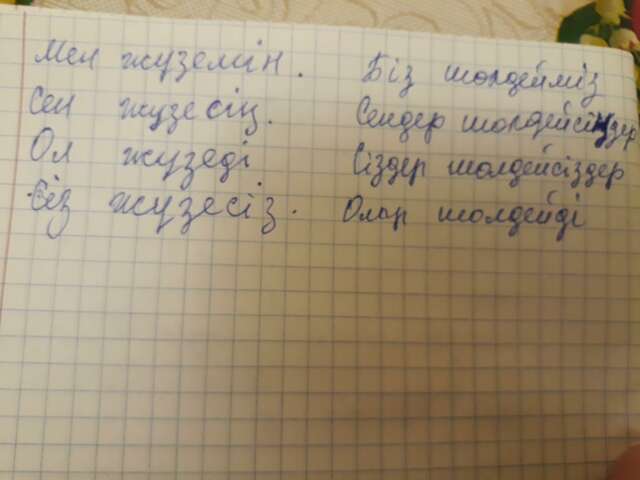 Мен жүземін. Біз шөлдейміз
Сен жүзесің. Сендер шөлдейсіңдер
Ол жүзеді Сіздер шөлдейсіздер
Сіз жүзесіз. Олар шөлдейді